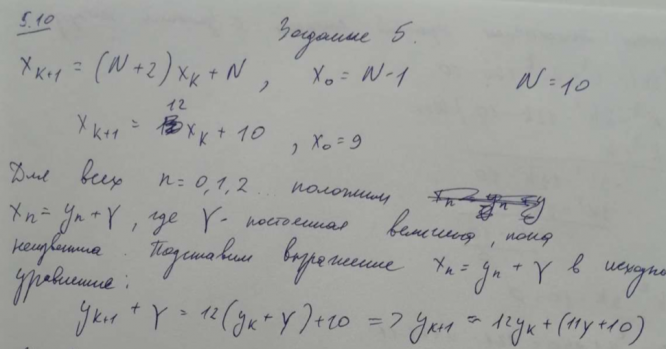 5.10
Задание 5.
x_{k+1} = (N+2) x_k + N, x_0 = N-1 N = 10
x_{k+1} = 12 x_k + 10, x_0 = 9
Для всех n = 0,1,2... положим
x_n = y_n + γ, где γ - постоянная величина, пока
неизвестна. Подставим выражение x_n = y_n + γ в исходно
уравнение:
y_{k+1} + γ = 12(y_k + γ) + 10 => y_{k+1} = 12y_k + (11γ + 10)